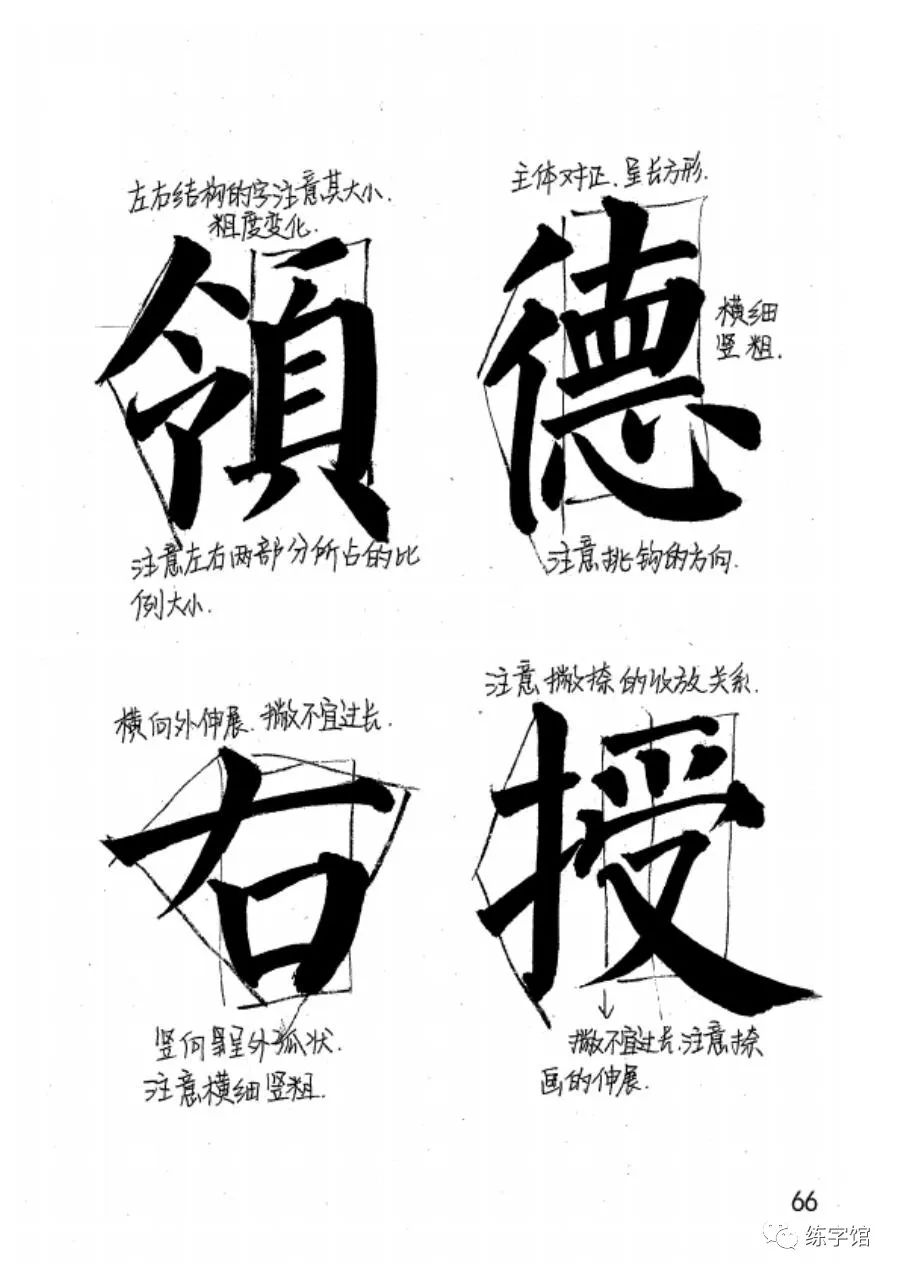 左右结构的字注意其大小.
粗度变化.
領
注意左右两部分所占的比
例大小.
主体对正.呈长方形.
德
横细
竖粗.
注意挑钩的方向.
横向外伸展.撇不宜过长.
右
竖向呈外弧状.
注意横细竖粗.
注意撇捺的收放关系.
授
撇不宜过长.注意捺
画的伸展.
66
练字馆